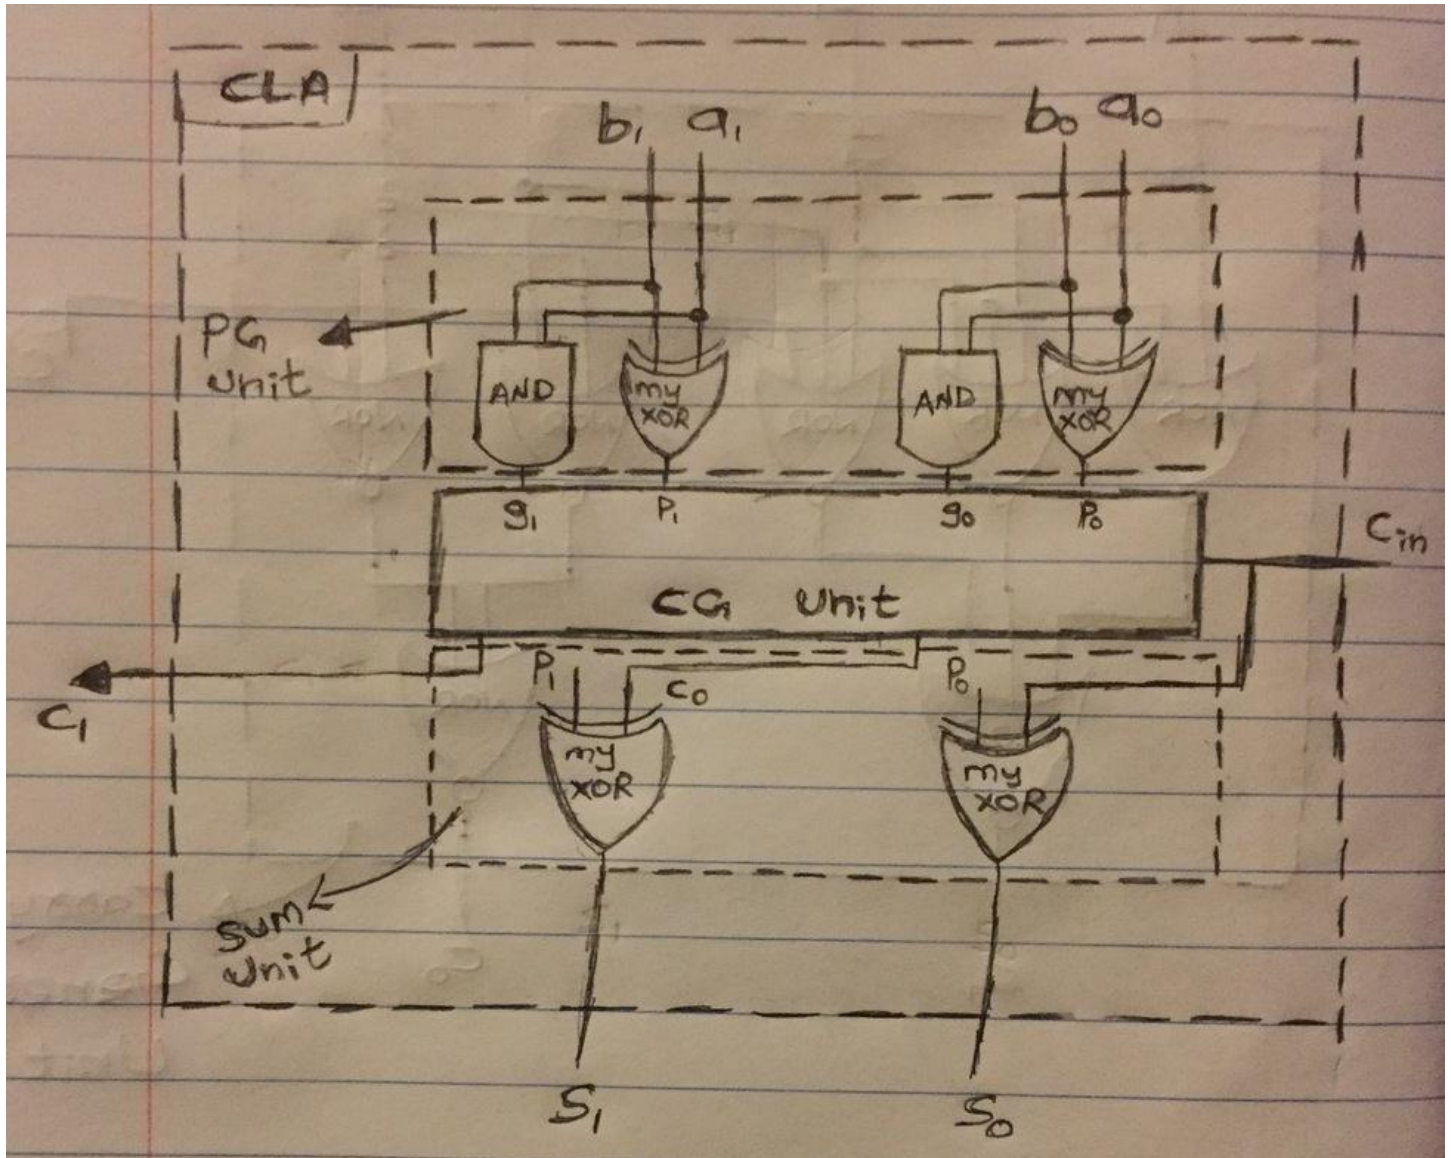 CLA
b₁ a₁ b₀ a₀
PG
Unit
AND
my
XOR
AND
my
XOR
g₁ P₁ g₀ P₀
Cin
CG Unit
P₁ C₀ P₀
C₁
my
XOR
my
XOR
Sum
Unit
S₁ S₀